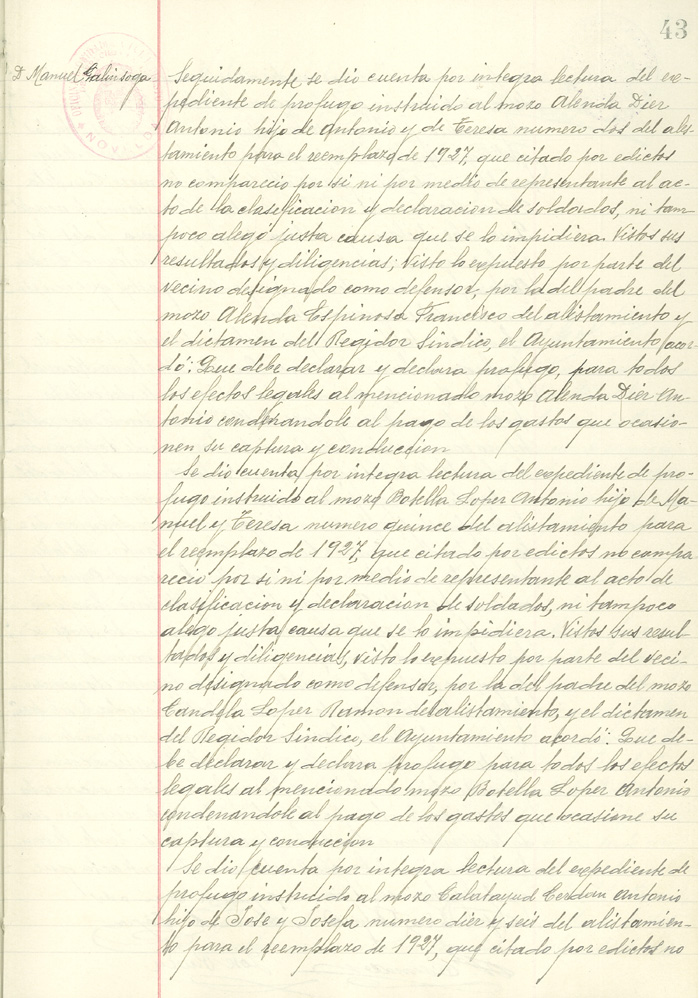 43
D. Manuel Galinsoga
Seguidamente se dio cuenta por integra lectura del ex-
pediente de profugo instruido al mozo Alenda Dier
Antonio hijo de Antonio y de Teresa numero dos del alis-
tamiento para el reemplazo de 1927, que citado por edictos
no comparecio por si ni por medio de representante al ac-
to de la clasificacion y declaracion de soldados, ni tam-
poco alegó justa causa que se lo impidiera. Vistos sus
resultados y diligencias; visto lo expuesto por parte del
vecino designado como defensor, por la del padre del
mozo Alenda Espinosa Francisco del alistamiento y
el dictamen del Regidor Sindico, el Ayuntamiento acor-
dó: Que debe declarar y declara profugo, para todos
los efectos legales al mencionado mozo Alenda Dier An-
tonio condenandole al pago de los gastos que ocasio-
nen su captura y conduccion
Se dio cuenta por integra lectura del expediente de pro-
fugo instruido al mozo Botella Loper Antonio hijo de Ma-
nuel y Teresa numero quince del alistamiento para
el reemplazo de 1927, que citado por edictos no compa
recio por si ni por medio de representante al acto de
clasificacion y declaracion de soldados, ni tampoco
alego justa causa que se lo impidiera. Vistos sus resul
tados y diligencias, visto lo expuesto por parte del veci-
no designado como defensor, por la del padre del mozo
Candela Loper Ramon del alistamiento, y el dictamen
del Regidor Sindico, el Ayuntamiento acordó: Que de-
be declarar y declara profugo para todos los efectos
legales al mencionado mozo Botella Loper Antonio
condenandole al pago de los gastos que ocasione su
captura y conduccion
Se dio cuenta por integra lectura del expediente de
profugo instruido al mozo Calatayud Cerdan Antonio
hijo de Jose y Josefa numero dier y seis del alistamien-
to para el reemplazo de 1927, que citado por edictos no